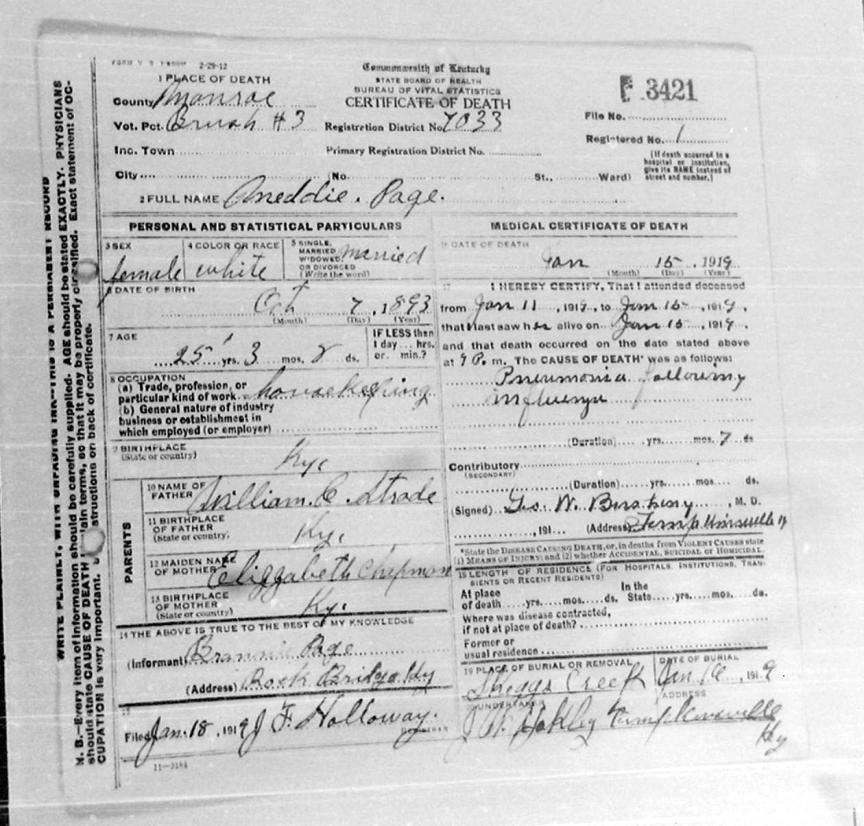 FORM V. S. 2-29-12
Commonwealth of Kentucky
STATE BOARD OF HEALTH
BUREAU OF VITAL STATISTICS
CERTIFICATE OF DEATH
3421
1 PLACE OF DEATH
County Monroe
Vot. Pct. Brush #3 Registration District No. 7033
File No.
Registered No. 1
Inc. Town Primary Registration District No.
[If death occurred in a
hospital or institution,
give its NAME instead of
street and number.]
City (No. St., Ward)
2 FULL NAME Oneddie. Page.
PERSONAL AND STATISTICAL PARTICULARS
3 SEX
female
4 COLOR OR RACE
white
5 SINGLE,
MARRIED
WIDOWED,
OR DIVORCED
(Write the word)
married
6 DATE OF BIRTH
Oct 7, 1893
(Month) (Day) (Year)
7 AGE
25 yrs. 3 mos. 8 ds.
IF LESS than
1 day... hrs.
or... min.?
8 OCCUPATION
(a) Trade, profession, or
particular kind of work housekeeping
(b) General nature of industry
business or establishment in
which employed (or employer)
9 BIRTHPLACE
(State or country) Ky.
PARENTS
10 NAME OF
FATHER William C. Strode
11 BIRTHPLACE
OF FATHER
(State or country) Ky.
12 MAIDEN NAME
OF MOTHER Eliggabeth Chipman
13 BIRTHPLACE
OF MOTHER
(State or country) Ky.
14 THE ABOVE IS TRUE TO THE BEST OF MY KNOWLEDGE
(Informant) Brannie Page
(Address) Rock Bridge Ky
15
Filed Jan. 18, 1919 J. F. Holloway.
REGISTRAR
11-3184
MEDICAL CERTIFICATE OF DEATH
DATE OF DEATH
Jan 15, 1919
(Month) (Day) (Year)
17 I HEREBY CERTIFY, That I attended deceased
from Jan 11, 1919, to Jan 15, 1919,
that I last saw her alive on Jan 15, 1919,
and that death occurred on the date stated above
at 9 P. m. The CAUSE OF DEATH* was as follows:
Pneumonia following
Influenza
(Duration) yrs. mos. 7 ds
Contributory
(SECONDARY)
(Duration) yrs. mos. ds.
(Signed) Geo. W. Bushong, M. D.
, 191 (Address)
*State the DISEASE CAUSING DEATH, or, in deaths from VIOLENT CAUSES state
(1) MEANS OF INJURY; and (2) whether ACCIDENTAL, SUICIDAL or HOMICIDAL.
18 LENGTH OF RESIDENCE (FOR HOSPITALS, INSTITUTIONS, TRAN-
SIENTS OR RECENT RESIDENTS)
At place
of death yrs. mos. ds.
In the
State yrs. mos. ds.
Where was disease contracted,
if not at place of death?
Former or
usual residence
19 PLACE OF BURIAL OR REMOVAL
Skeggs Creek
DATE OF BURIAL
Jan. 16, 1919
UNDERTAKER
J. W. Oakley
ADDRESS
Tompkinsville
Ky
WRITE PLAINLY, WITH UNFADING INK—THIS IS A PERMANENT RECORD
N. B.—Every item of information should be carefully supplied. AGE should be stated EXACTLY. PHYSICIANS
should state CAUSE OF DEATH in plain terms, so that it may be properly classified. Exact statement of OC-
CUPATION is very important. structions on back of certificate.